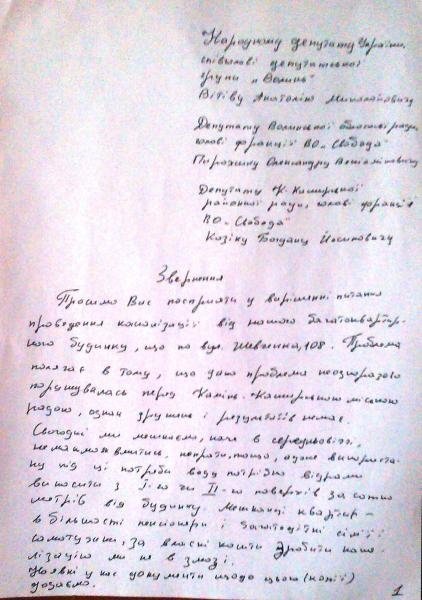 Народному депутату України,
співголові депутатської
групи "Волинь"
Вітіву Анатолію Миколайовичу
Депутату Волинської обласної ради,
голові фракції ВО "Свобода"
Пирожику Олександру Віталійовичу
Депутату К-Каширської
районної ради, голові фракції
ВО "Свобода"
Козіку Богдану Йосиповичу
Звернення
Просимо Вас посприяти у вирішенні питання
проведення каналізації від нашого багатоквартир-
ного будинку, що по вул. Шевченка, 108. Проблема
полягає в тому, що дана проблема неодноразово
порушувалась перед Камінь-Каширською міською
радою, однак зрушень і результатів немає.
Сьогодні ми мешкаємо, наче в середньовіччі,
неможливо вмитись, попрати, тощо, адже використа-
ну під ці потреби воду потрібно відрами
виносити з І-го чи ІІ-го поверхів за сотню
метрів від будинку. Мешканці квартир -
в більшості пенсіонери і багатодітні сім'ї і
самотужки, за власні кошти зробити кана-
лізацію ми не в змозі.
Наявні у нас документи щодо цього (копії)
додаємо.
1